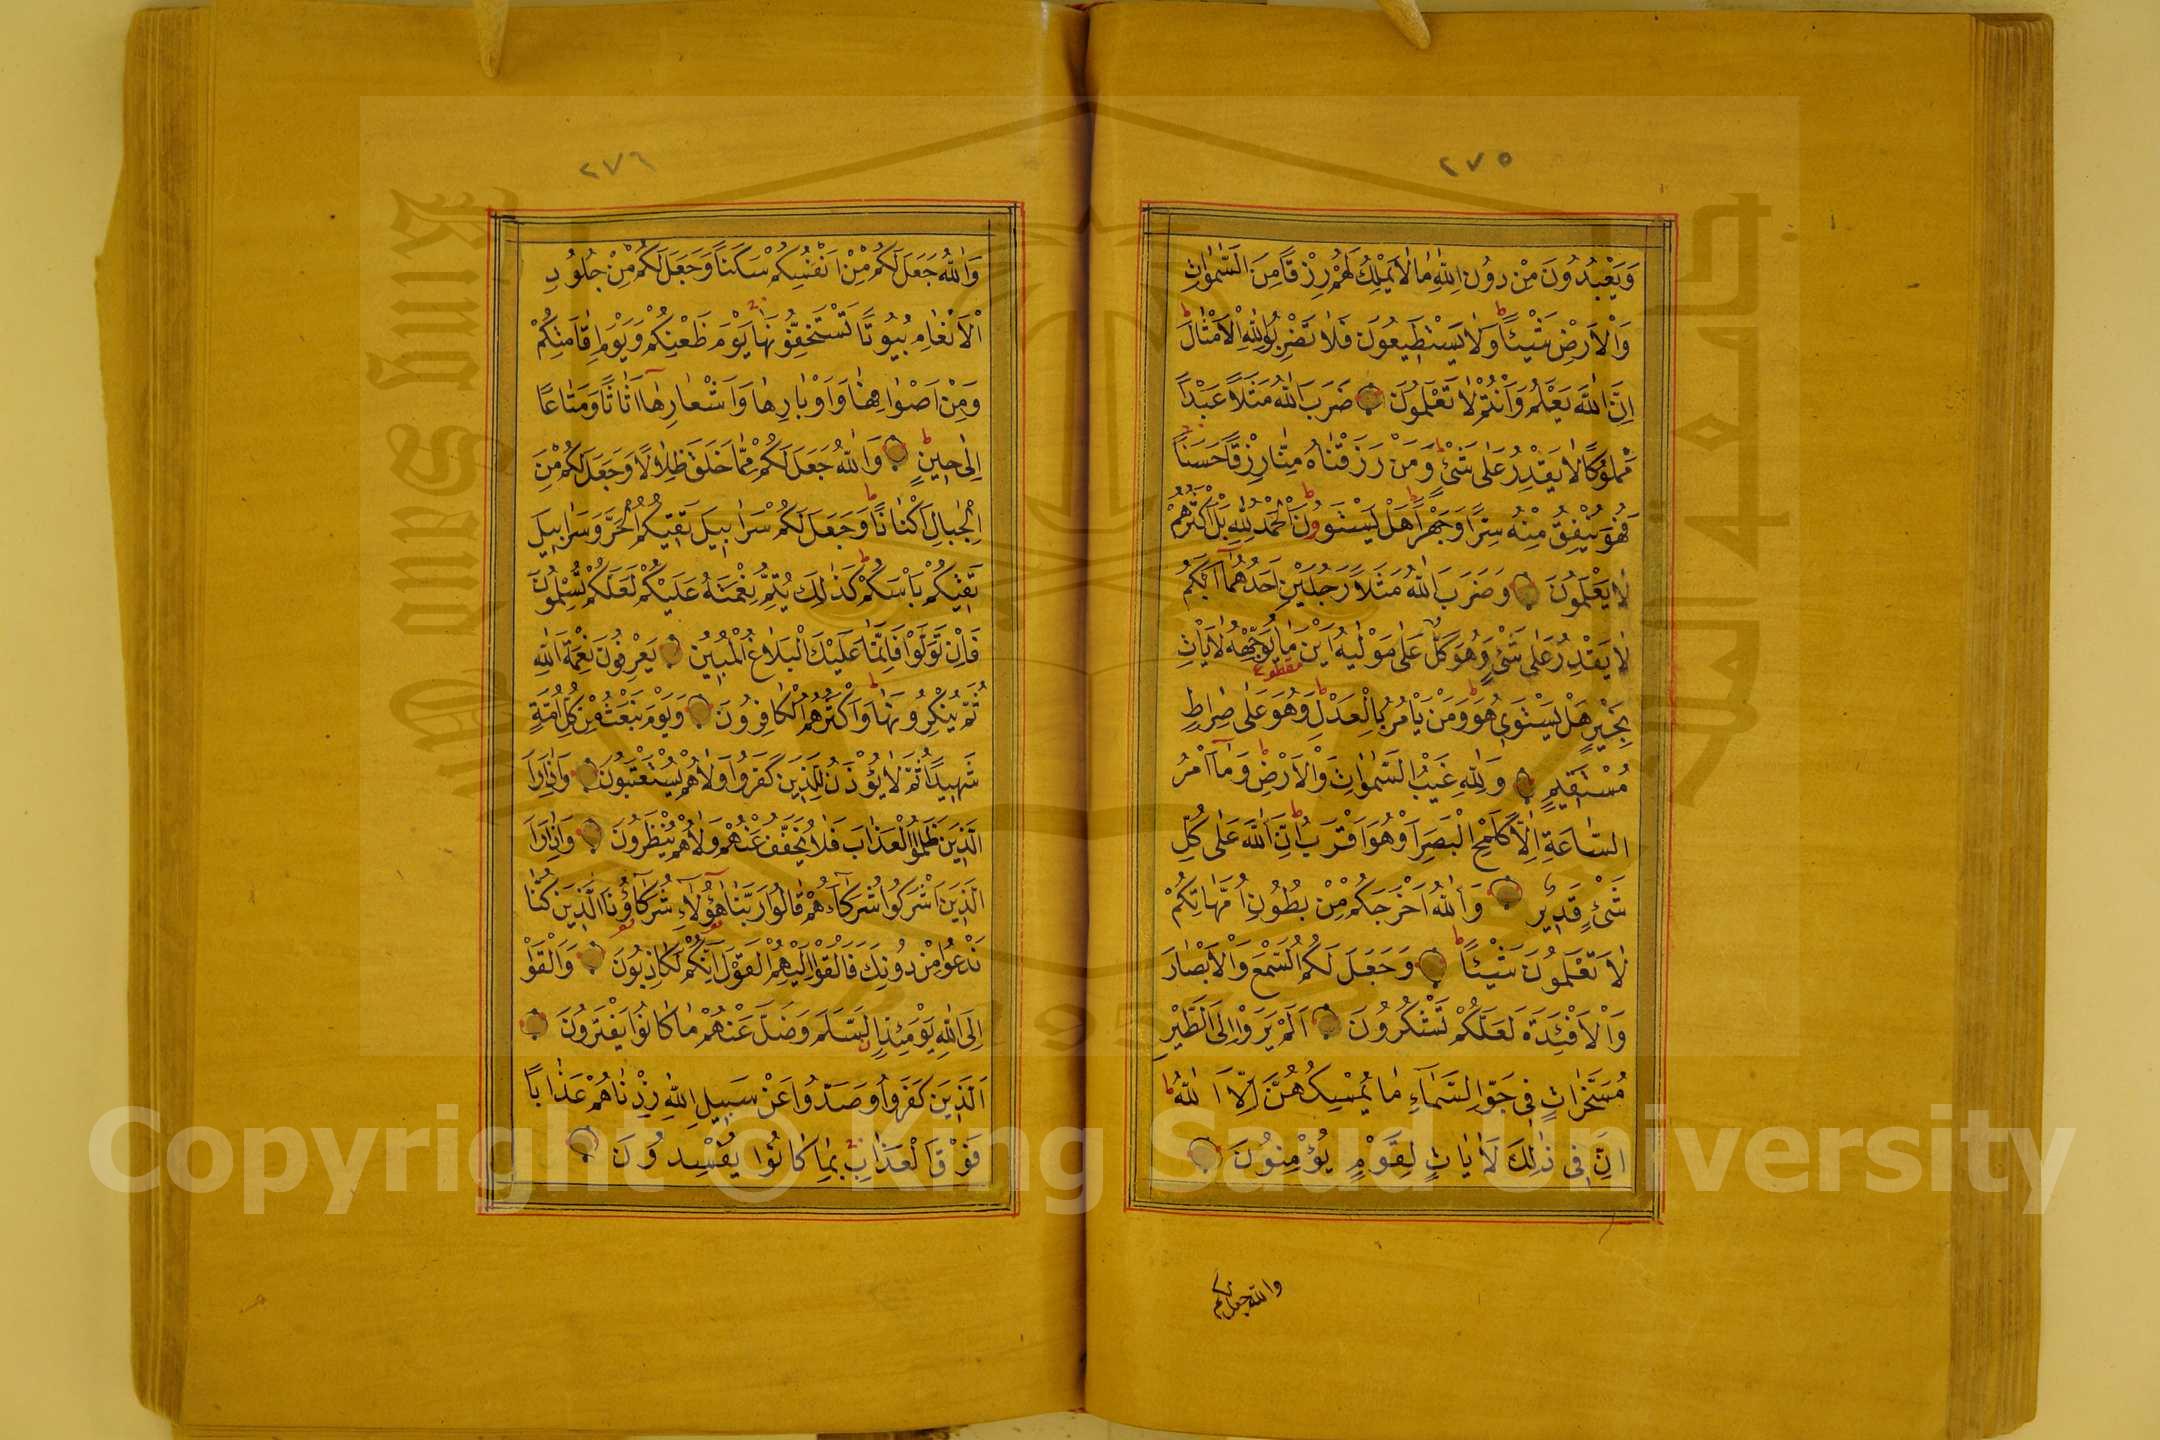 ٢٧٥
وَيَعْبُدُونَ مِنْ دُونِ اللّٰهِ مَا لَا يَمْلِكُ لَهُمْ رِزْقًا مِنَ السَّمٰوَاتِ
وَالْاَرْضِ شَيْئًا وَلَا يَسْتَطٖيعُونَ فَلَا تَضْرِبُوا لِلّٰهِ الْاَمْثَالَ
اِنَّ اللّٰهَ يَعْلَمُ وَاَنْتُمْ لَا تَعْلَمُونَ ضَرَبَ اللّٰهُ مَثَلًا عَبْدًا
مَمْلُوكًا لَا يَقْدِرُ عَلٰى شَيْءٍ وَمَنْ رَزَقْنَاهُ مِنَّا رِزْقًا حَسَنًا
فَهُوَ يُنْفِقُ مِنْهُ سِرًّا وَجَهْرًا هَلْ يَسْتَوُونَ اَلْحَمْدُ لِلّٰهِ بَلْ اَكْثَرُهُمْ
لَا يَعْلَمُونَ وَضَرَبَ اللّٰهُ مَثَلًا رَجُلَيْنِ اَحَدُهُمَا اَبْكَمُ
لَا يَقْدِرُ عَلٰى شَيْءٍ وَهُوَ كَلٌّ عَلٰى مَوْلٰيهُ اَيْنَ مَا يُوَجِّهْهُ لَا يَاْتِ
مقطوع
بِخَيْرٍ هَلْ يَسْتَوٖي هُوَ وَمَنْ يَاْمُرُ بِالْعَدْلِ وَهُوَ عَلٰى صِرَاطٍ
مُسْتَقٖيمٍ وَلِلّٰهِ غَيْبُ السَّمٰوَاتِ وَالْاَرْضِ وَمَا اَمْرُ
السَّاعَةِ اِلَّا كَلَمْحِ الْبَصَرِ اَوْ هُوَ اَقْرَبُ اِنَّ اللّٰهَ عَلٰى كُلِّ
شَيْءٍ قَدٖيرٌ وَاللّٰهُ اَخْرَجَكُمْ مِنْ بُطُونِ اُمَّهَاتِكُمْ
لَا تَعْلَمُونَ شَيْئًا وَجَعَلَ لَكُمُ السَّمْعَ وَالْاَبْصَارَ
وَالْاَفْئِدَةَ لَعَلَّكُمْ تَشْكُرُونَ اَلَمْ يَرَوْا اِلَى الطَّيْرِ
مُسَخَّرَاتٍ فٖي جَوِّ السَّمَاءِ مَا يُمْسِكُهُنَّ اِلَّا اللّٰهُ
اِنَّ فٖي ذٰلِكَ لَاٰيَاتٍ لِقَوْمٍ يُؤْمِنُونَ
والله جعل لكم
٢٧٦
وَاللّٰهُ جَعَلَ لَكُمْ مِنْ اَنْفُسِكُمْ سَكَنًا وَجَعَلَ لَكُمْ مِنْ جُلُودِ
الْاَنْعَامِ بُيُوتًا تَسْتَخِفُّونَهَا يَوْمَ ظَعْنِكُمْ وَيَوْمَ اِقَامَتِكُمْ
وَمِنْ اَصْوَافِهَا وَاَوْبَارِهَا وَاَشْعَارِهَا اَثَاثًا وَمَتَاعًا
اِلٰى حٖينٍ وَاللّٰهُ جَعَلَ لَكُمْ مِمَّا خَلَقَ ظِلَالًا وَجَعَلَ لَكُمْ مِنَ
الْجِبَالِ اَكْنَانًا وَجَعَلَ لَكُمْ سَرَابٖيلَ تَقٖيكُمُ الْحَرَّ وَسَرَابٖيلَ
تَقٖيكُمْ بَاْسَكُمْ كَذٰلِكَ يُتِمُّ نِعْمَتَهُ عَلَيْكُمْ لَعَلَّكُمْ تُسْلِمُونَ
فَاِنْ تَوَلَّوْا فَاِنَّمَا عَلَيْكَ الْبَلَاغُ الْمُبٖينُ يَعْرِفُونَ نِعْمَةَ اللّٰهِ
ثُمَّ يُنْكِرُونَهَا وَاَكْثَرُهُمُ الْكَافِرُونَ وَيَوْمَ نَبْعَثُ مِنْ كُلِّ اُمَّةٍ
شَهٖيدًا ثُمَّ لَا يُؤْذَنُ لِلَّذٖينَ كَفَرُوا وَلَا هُمْ يُسْتَعْتَبُونَ وَاِذَا رَاَ
الَّذٖينَ ظَلَمُوا الْعَذَابَ فَلَا يُخَفَّفُ عَنْهُمْ وَلَا هُمْ يُنْظَرُونَ وَاِذَا رَاَ
الَّذٖينَ اَشْرَكُوا شُرَكَاءَهُمْ قَالُوا رَبَّنَا هٰؤُلَاءِ شُرَكَاؤُنَا الَّذٖينَ كُنَّا
نَدْعُوا مِنْ دُونِكَ فَاَلْقَوْا اِلَيْهِمُ الْقَوْلَ اِنَّكُمْ لَكَاذِبُونَ وَاَلْقَوْا
اِلَى اللّٰهِ يَوْمَئِذٍ السَّلَمَ وَضَلَّ عَنْهُمْ مَا كَانُوا يَفْتَرُونَ
اَلَّذٖينَ كَفَرُوا وَصَدُّوا عَنْ سَبٖيلِ اللّٰهِ زِدْنَاهُمْ عَذَابًا
فَوْقَ الْعَذَابِ بِمَا كَانُوا يُفْسِدُونَ
Copyright © King Saud University
King Saud
جامعة الملك
195